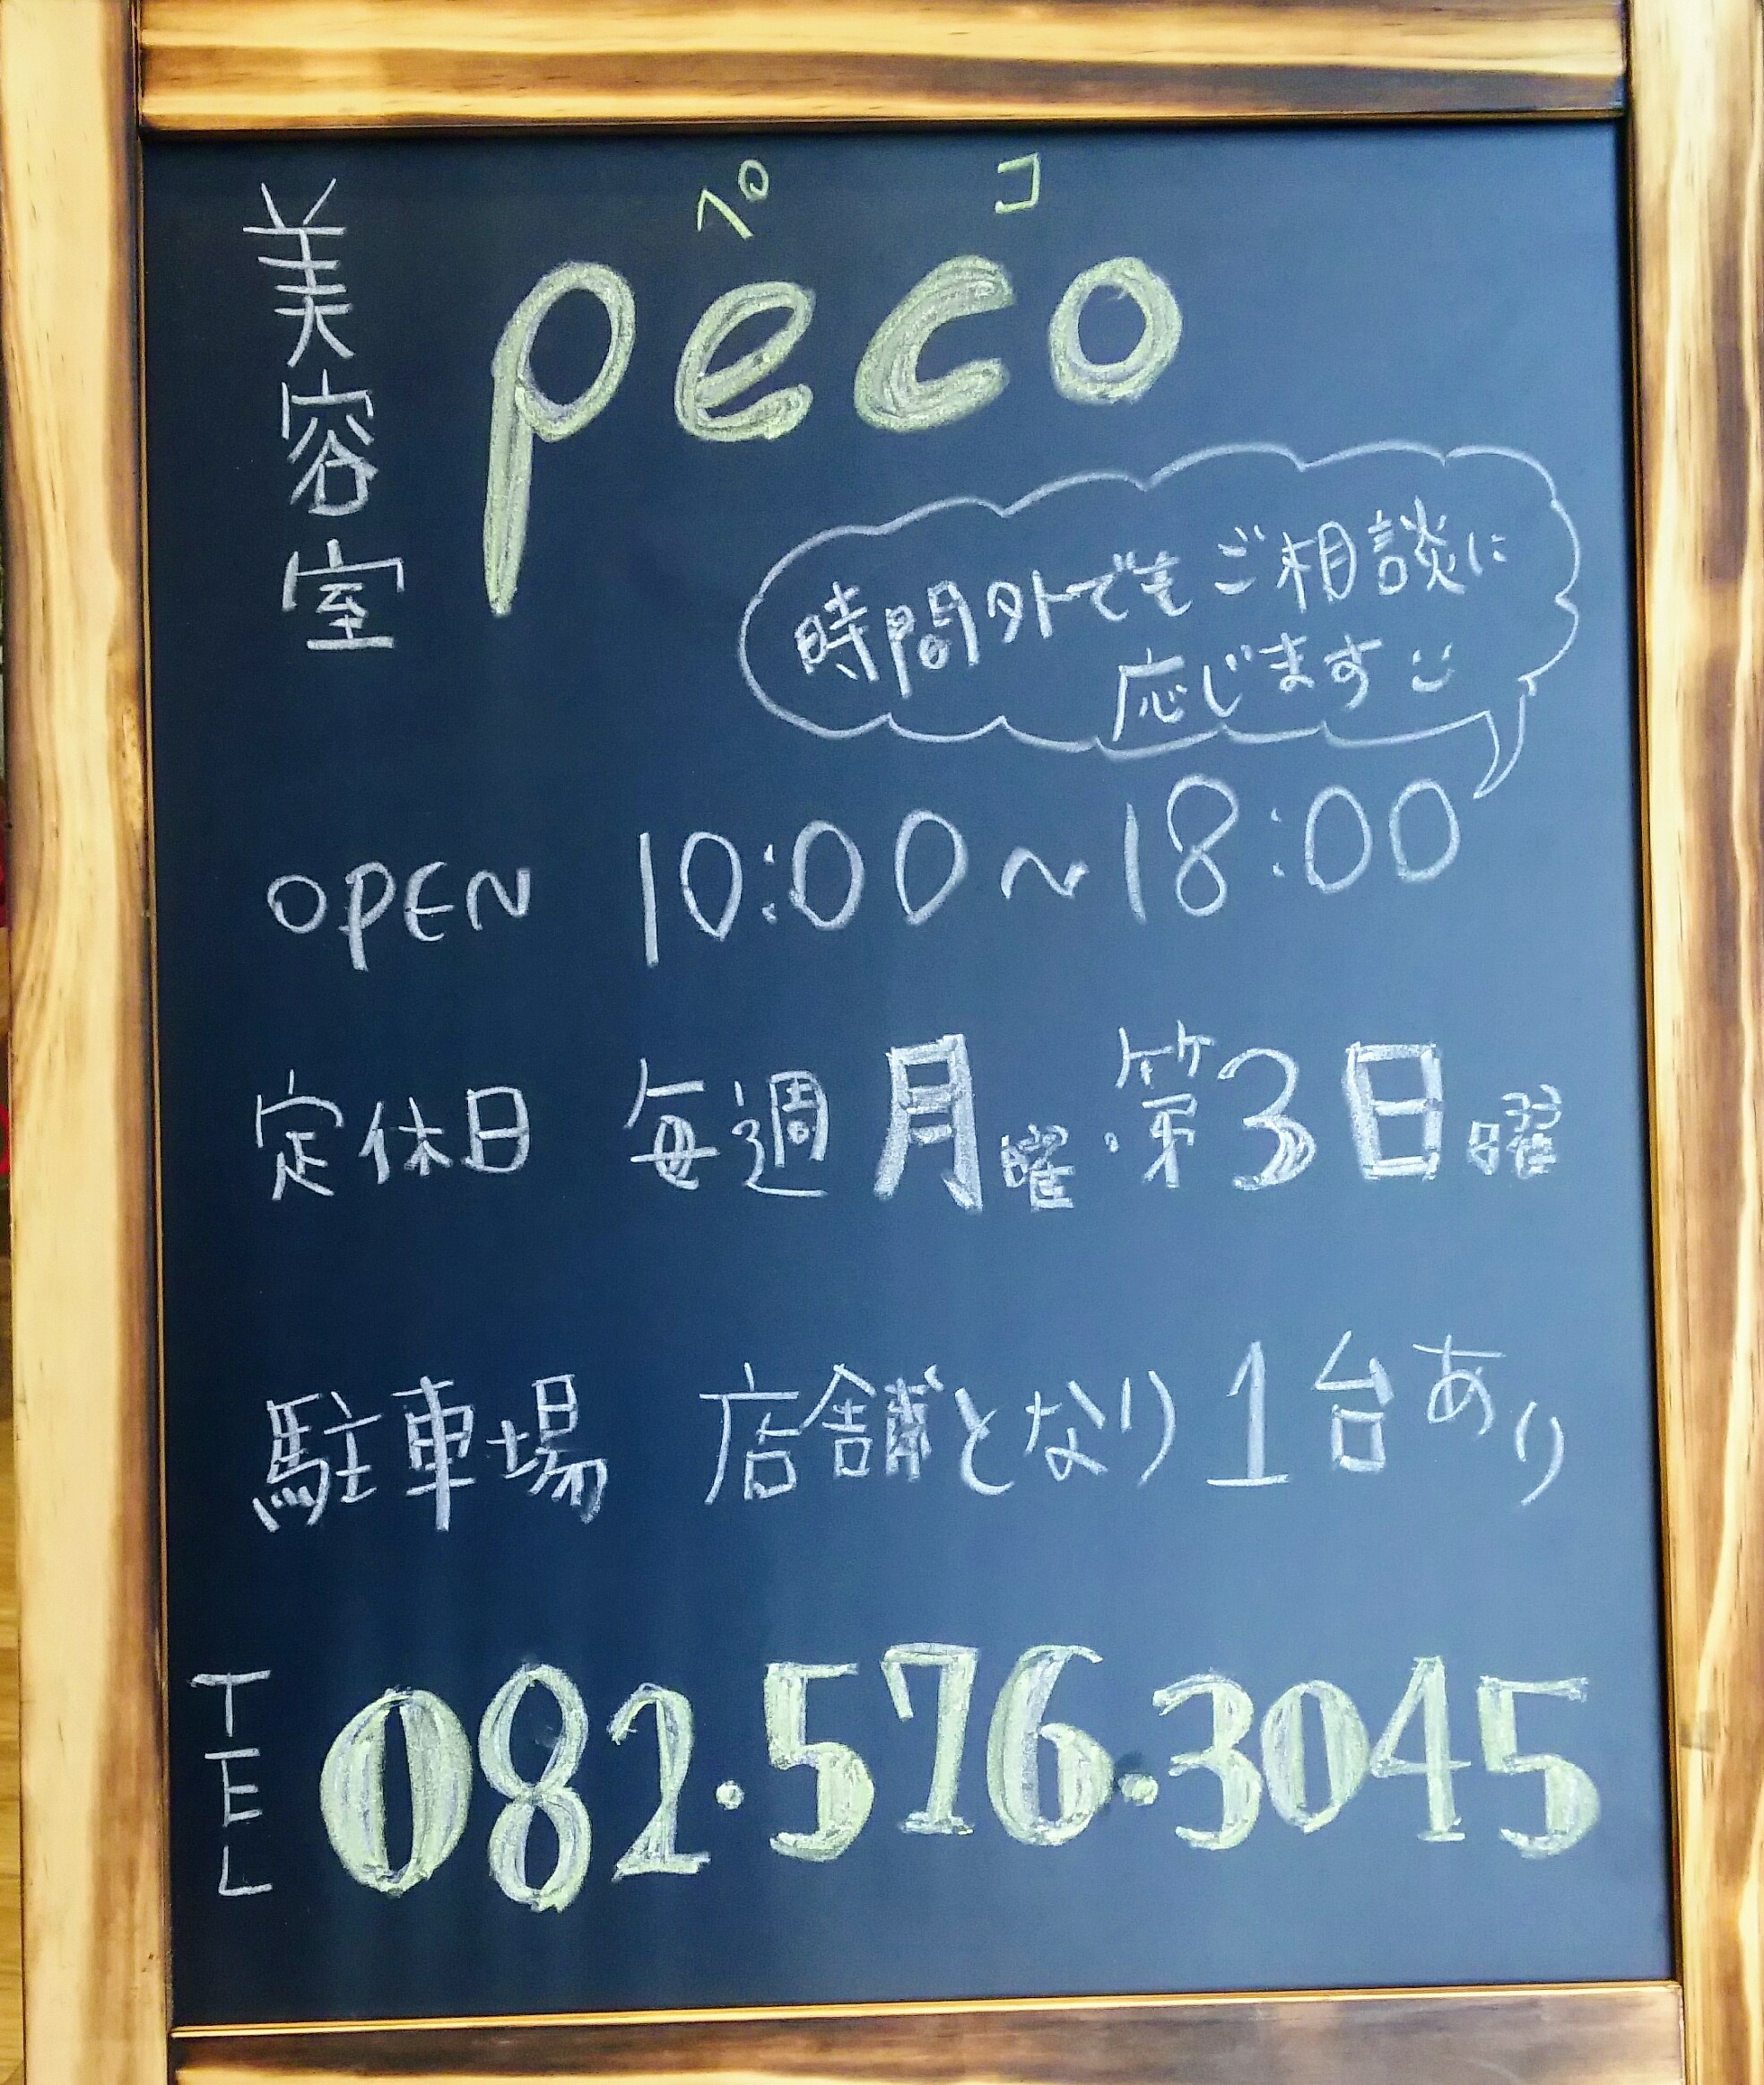 美容室
ペコ
peco
時間外でもご相談に
応じます
OPEN 10:00~18:00
定休日 毎週月曜・第3日曜
駐車場 店舗となり1台あり
TEL 082・576・3045